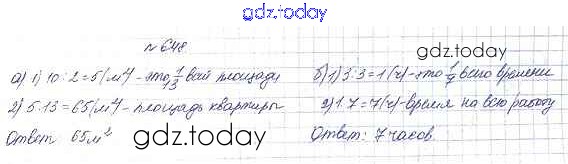 gdz.today
№ 648
gdz.today
а) 1) 10 : 2 = 5 (м²) - это 1/13 всей площади
2) 5·13 = 65 (м²) - площадь квартиры
Ответ: 65 м²
gdz.today
б) 1) 3:3 = 1 (ч) - это 1/7 всего времени
2) 1·7 = 7 (ч) - время на всю работу
Ответ: 7 часов.